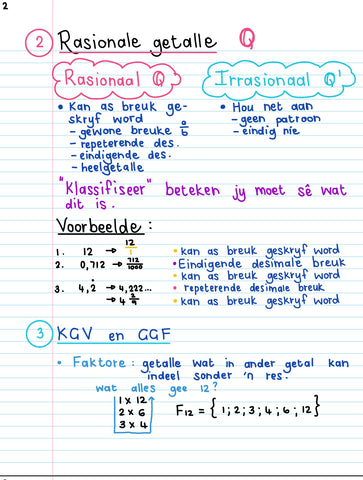 2
2 Rasionale getalle Q
Rasionaal Q Irrasionaal Q'
• Kan as breuk ge-
skryf word
- gewone breuke a/b
- repeterende des.
- eindigende des.
- heelgetalle
• Hou net aan
- geen patroon
- eindig nie
"Klassifiseer" beteken jy moet sê wat
dit is.
Voorbeelde:
1. 12 → 12/1 • kan as breuk geskryf word
2. 0,712 → 712/1000 • Eindigende desimale breuk
• kan as breuk geskryf word
3. 4,2̇ → 4,222... • repeterende desimale breuk
→ 4 2/9 • kan as breuk geskryf word
3 KGV en GGF
• Faktore: getalle wat in ander getal kan
indeel sonder 'n res.
wat alles gee 12?
1 x 12
2 x 6
3 x 4
F12 = { 1; 2; 3; 4; 6; 12}